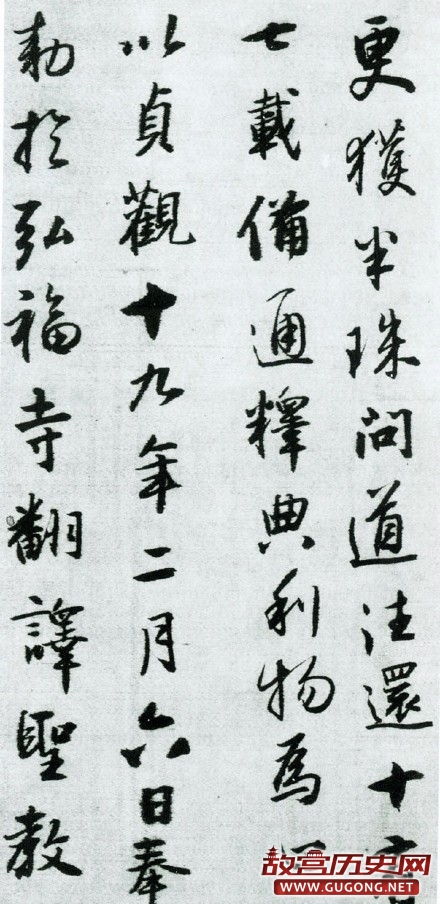 更獲半珠問道往還十有
七載備通釋典利物爲心
以貞觀十九年二月六日奉
勅於弘福寺翻譯聖教
故宫历史网
WWW.GUGONG.NET